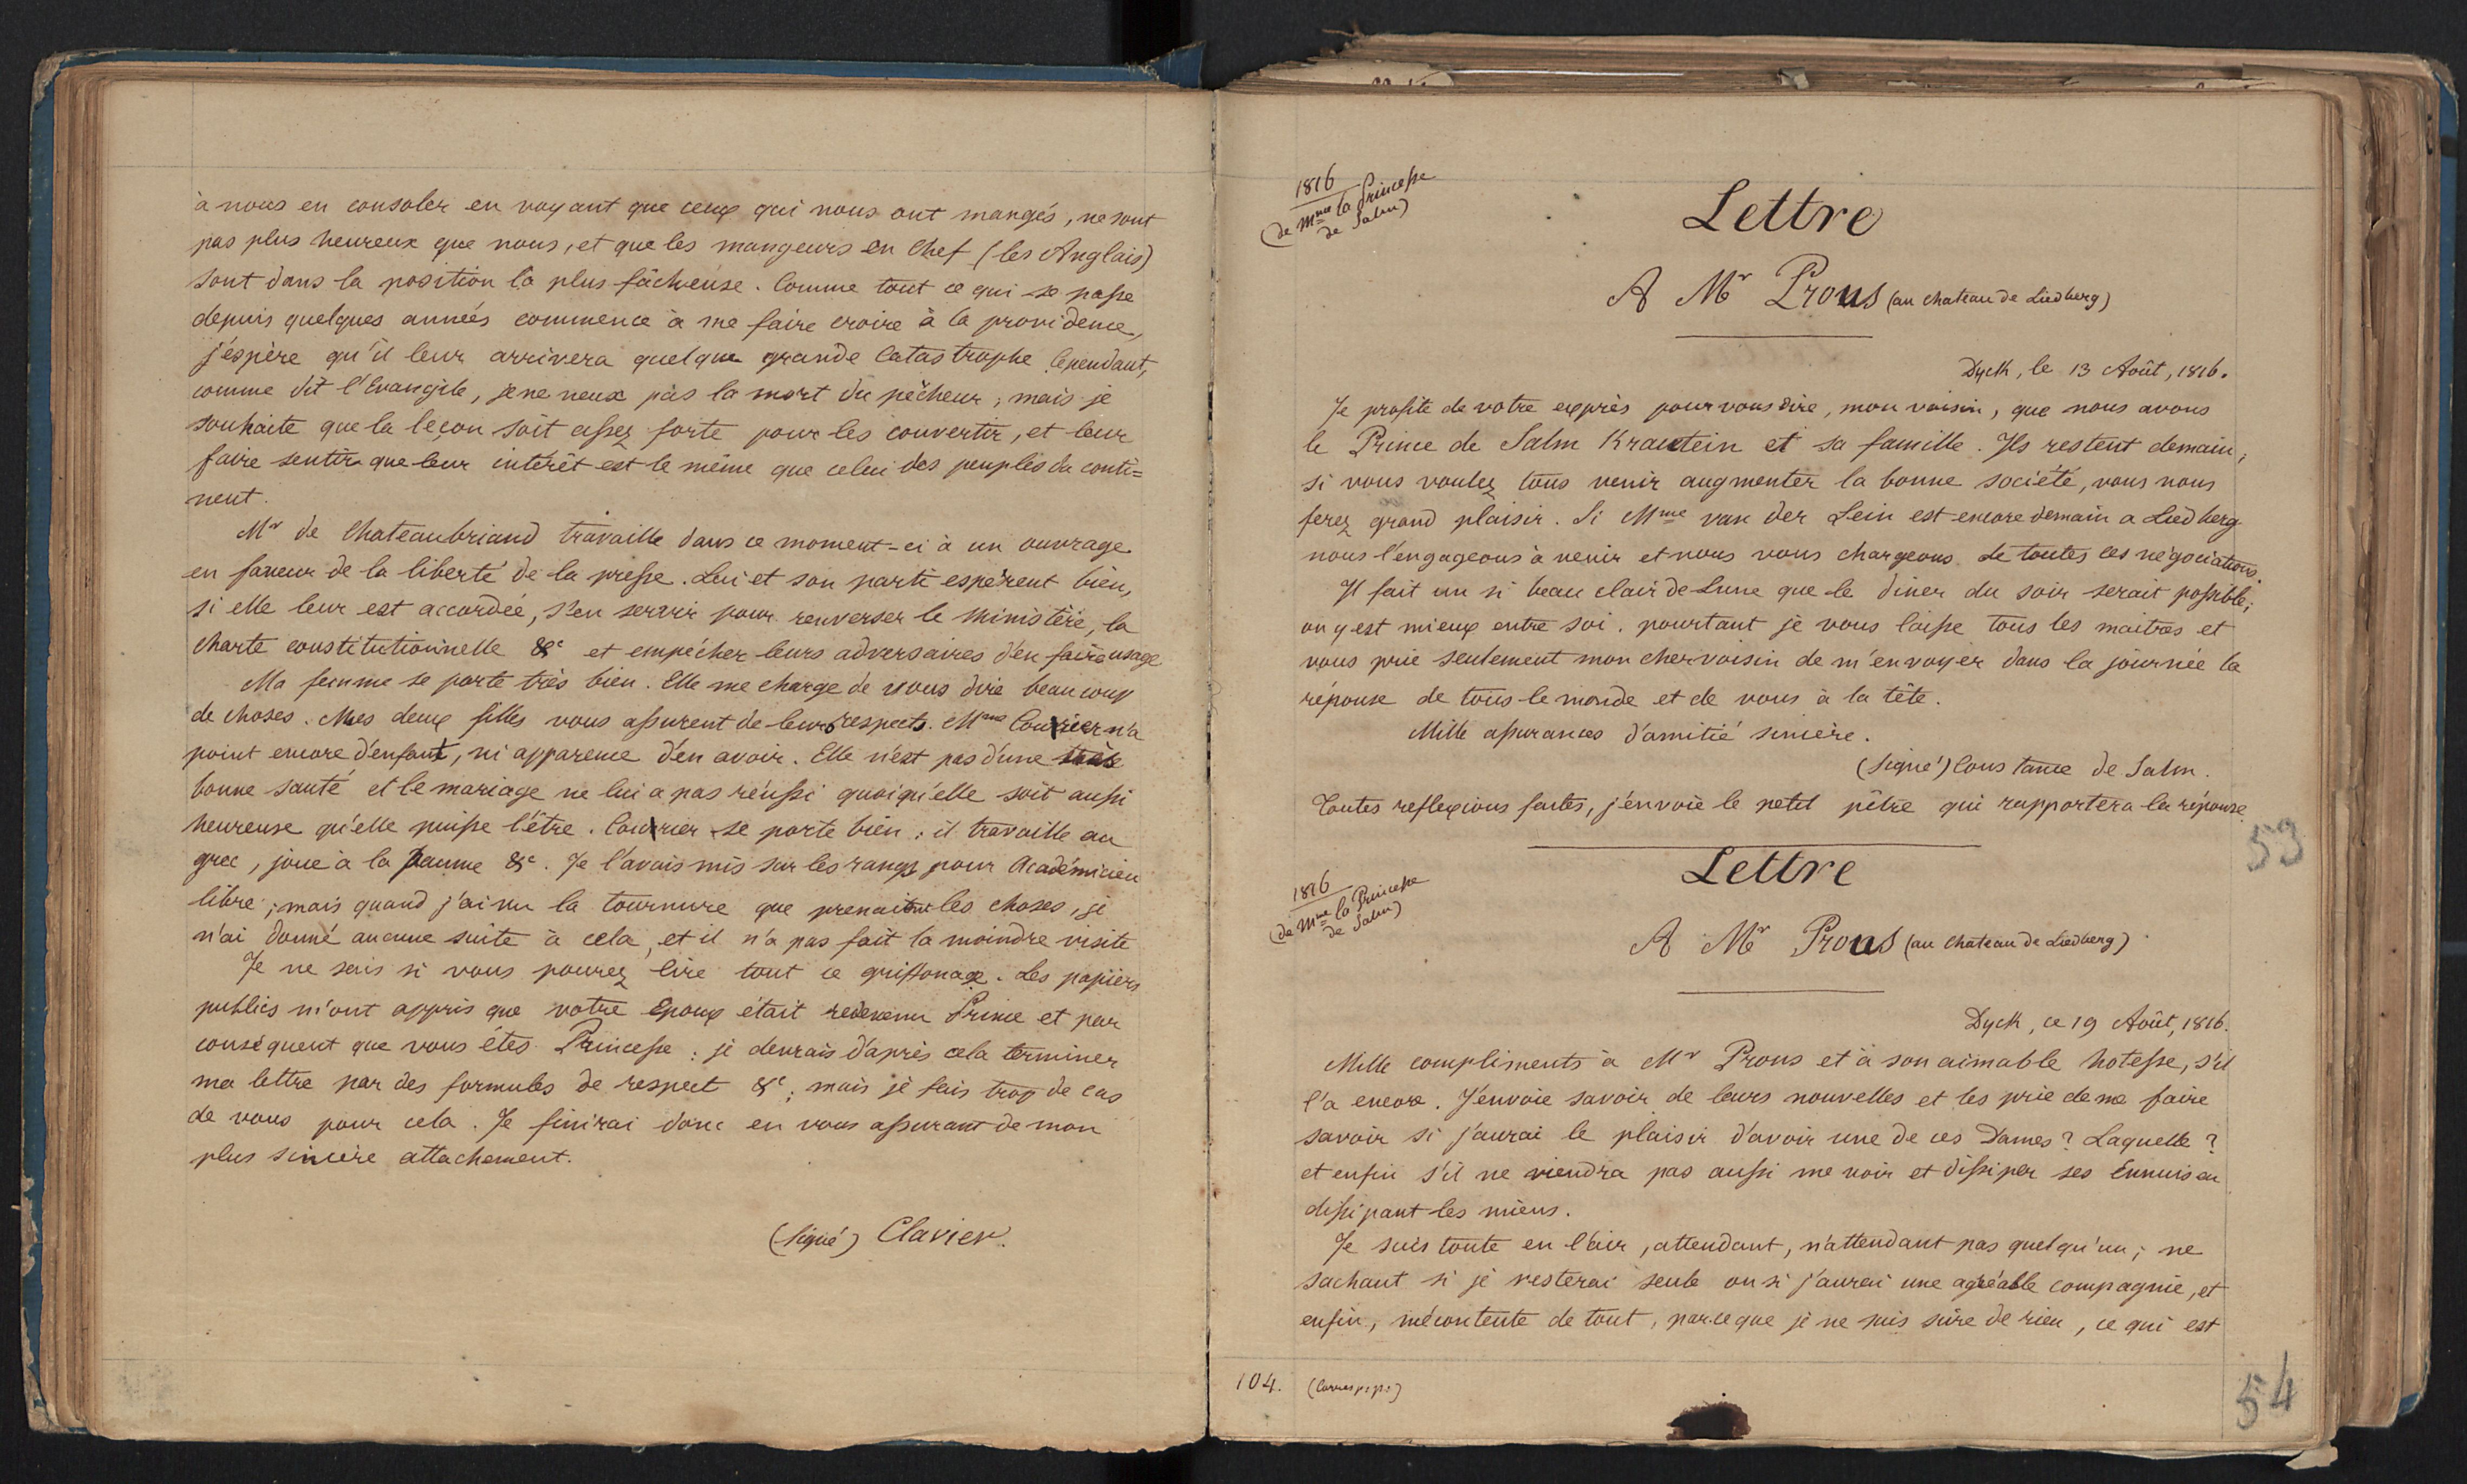 à nous en consoler en voyant que ceux qui nous ont mangés, ne sont
pas plus heureux que nous, et que les mangeurs en chef (les Anglais)
sont dans la position la plus fâcheuse. Comme tout ce qui se passe
depuis quelques années commence à me faire croire à la providence,
j'éspère qu'il leur arrivera quelque grande Catastrophe. Cependant,
comme dit l'Evangile, je ne veux pas la mort du pêcheur, mais je
souhaite que la leçon soit assez forte pour les convertir, et leur
faire sentir que leur intérêt est le même que celui des peuples du conti=
nent.
Mr de Chateaubriand travaille dans ce moment-ci à un ouvrage
en faveur de la liberté de la presse. Lui et son parti espèrent bien,
si elle leur est accordée, s'en servir pour renverser le Ministère, la
charte constitutionnelle &c et empêcher leurs adversaires d'en faire usage
Ma femme se porte très bien. Elle me charge de vous dire beaucoup
de choses. Mes deux filles vous assurent de leurs respects. Mme Courier n'a
point encore d'enfant, ni apparence d'en avoir. Elle n'est pas d'une très
bonne santé et le mariage ne lui a pas réussi quoiqu'elle soit aussi
heureuse qu'elle puisse l'être. Courier se porte bien; il travaille au
grec, joue à la paume &c. Je l'avais mis sur les rangs pour Académicien
libre; mais quand j'ai vu la tournure que prenaient les choses, je
n'ai donné aucune suite à cela, et il n'a pas fait la moindre visite
Je ne sais si vous pourez lire tout ce griffonage. Les papiers
publics m'ont appris que votre Epoux était redevenu Prince et par
conséquent que vous êtes Princesse: je devrais d'après cela terminer
ma lettre par des formules de respect &c; mais je fais trop de cas
de vous pour cela. Je finirai donc en vous assurant de mon
plus sincère attachement.
(signé) Clavier.
1816
(de Mme la Princesse
de Salm)
Lettre
A Mr Prous (au chateau de Liedberg)
Dyck, le 13 Août, 1816.
Je profite de votre exprès pour vous dire, mon voisin, que nous avons
le Prince de Salm Krautein et sa famille. Ils restent demain;
si vous voulez tous venir augmenter la bonne société, vous nous
ferez grand plaisir. Si Mme van der Lein est encore demain a Liedberg
nous l'engageons à venir et nous vous chargeons de toutes ces négociations.
Il fait un si beau clair de Lune que le diner du soir serait possible;
on y est mieux entre soi. pourtant je vous laisse tous les maitres et
vous prie seulement mon cher voisin de m'envoyer dans la journée la
réponse de tous le monde et de vous à la tête.
Mille assurances d'amitié sincère.
(signé) Constance de Salm.
Toutes reflexions faites, j'envoie le petit pêtre qui rapportera la réponse.
53
1816
(de Mme la Princesse
de Salm)
Lettre
A Mr Prous (au chateau de Liedberg)
Dyck, ce 19 Août, 1816.
Mille compliments à Mr Prous et à son aimable hotesse, s'il
l'a encore. J'envoie savoir de leurs nouvelles et les prie de me faire
savoir si j'aurai le plaisir d'avoir une de ces Dames? Laquelle?
et enfin s'il ne viendra pas aussi me voir et dissiper ses Ennuis en
dissipant les miens.
Je suis toute en l'air, attendant, n'attendant pas quelqu'un; ne
sachant si je resterai seule ou si j'aurai une agréable compagnie, et
enfin, mécontente de tout, parceque je ne suis sûre de rien, ce qui est
104.
54